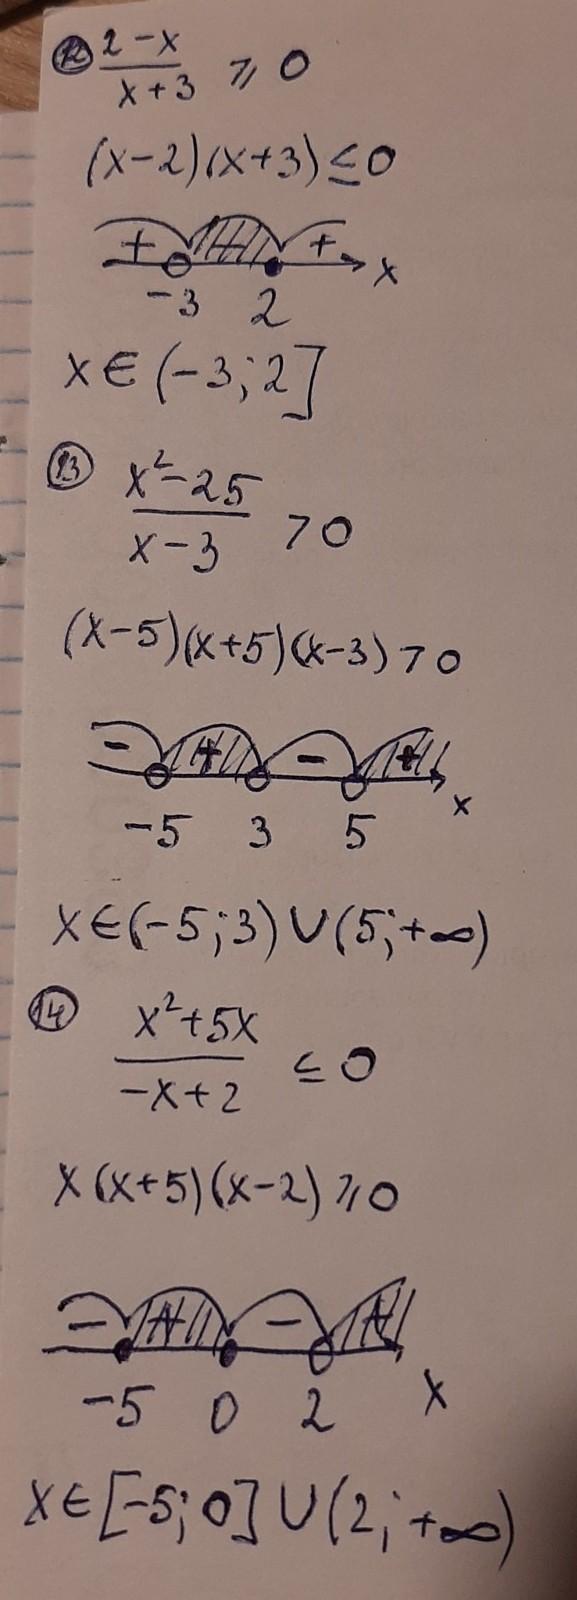 12 2-x
x+3 ⩾ 0
(x-2)(x+3) ≤ 0
+ - +
-3 2 x
x∈(-3;2]
13 x²-25
x-3 >0
(x-5)(x+5)(x-3)>0
- + - +
-5 3 5 x
x∈(-5;3)∪(5;+∞)
14 x²+5x
-x+2 ≤ 0
x(x+5)(x-2)⩾0
- + - +
-5 0 2 x
x∈[-5;0]∪(2;+∞)